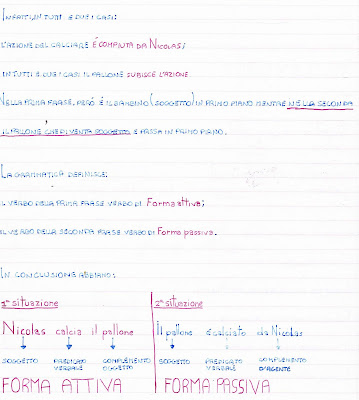 INFATTI, IN TUTTI E DUE I CASI:
L'AZIONE DEL CALCIARE È COMPIUTA DA NICOLAS;
IN TUTTI E DUE I CASI IL PALLONE SUBISCE L'AZIONE.
NELLA PRIMA FRASE, PERÒ È IL BAMBINO (SOGGETTO) IN PRIMO PIANO MENTRE NELLA SECONDA
IL PALLONE CHE DIVENTA SOGGETTO E PASSA IN PRIMO PIANO.
LA GRAMMATICA DEFINISCE:
IL VERBO DELLA PRIMA FRASE VERBO DI Forma attiva;
IL VERBO DELLA SECONDA FRASE VERBO DI Forma passiva.
IN CONCLUSIONE ABBIAMO:
1ª situazione
Nicolas calcia il pallone
SOGGETTO PREDICATO VERBALE COMPLEMENTO OGGETTO
FORMA ATTIVA
2ª situazione
Il pallone è calciato da Nicolas
SOGGETTO PREDICATO VERBALE COMPLEMENTO D'AGENTE
FORMA PASSIVA